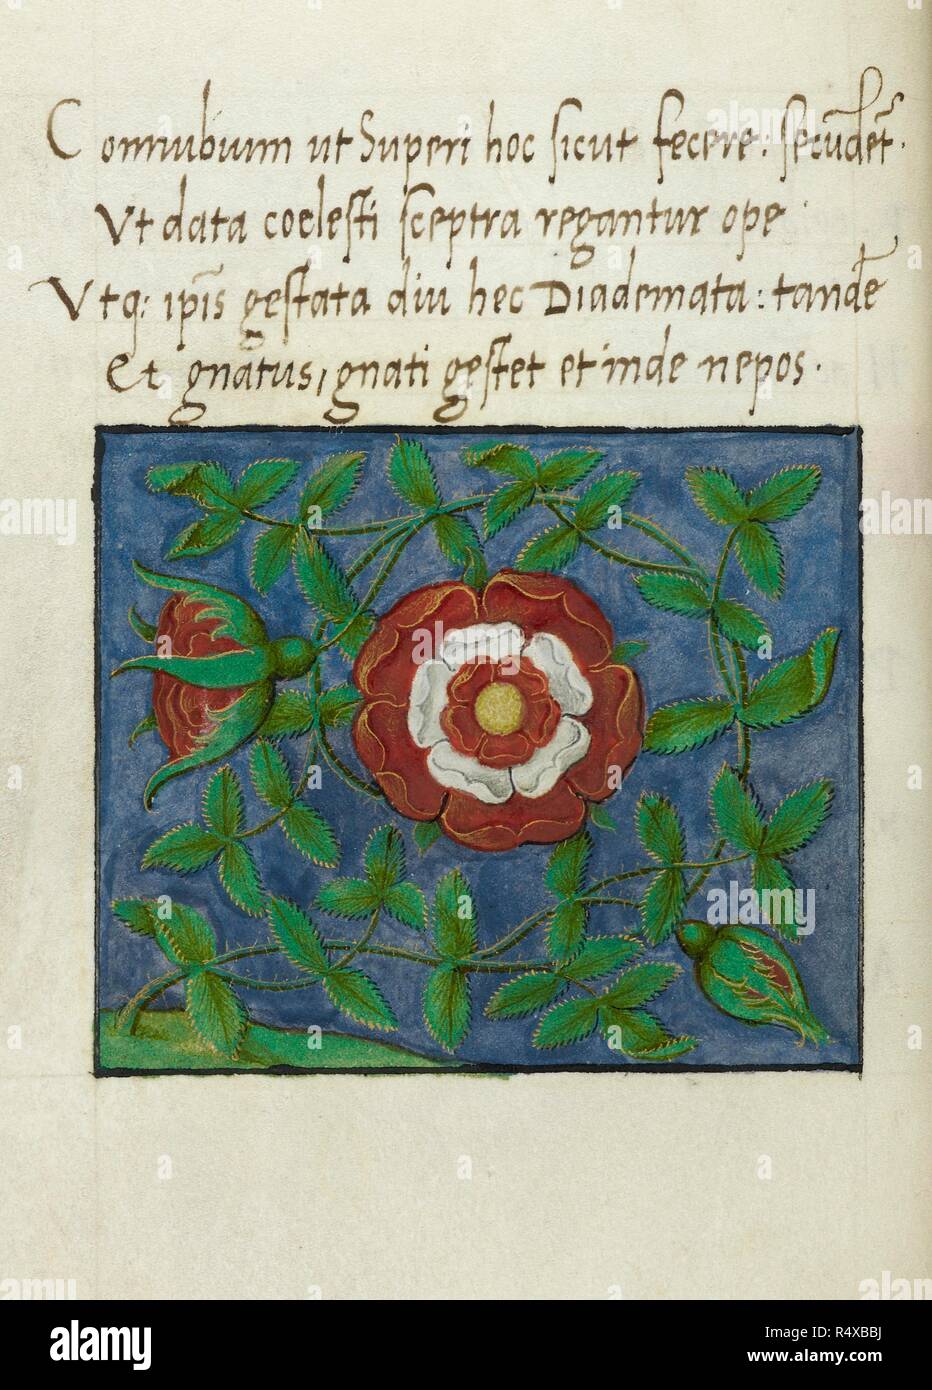 Connubium ut Superi hoc sicut fecere: secūdēt.
Ut data coelesti sceptra regantur ope.
Utq: ipīs gestata diu hec Diademata: tandē
Et gnatus, gnati gestet et inde nepos.
alamy
Image ID: R4XBBJ
www.alamy.com